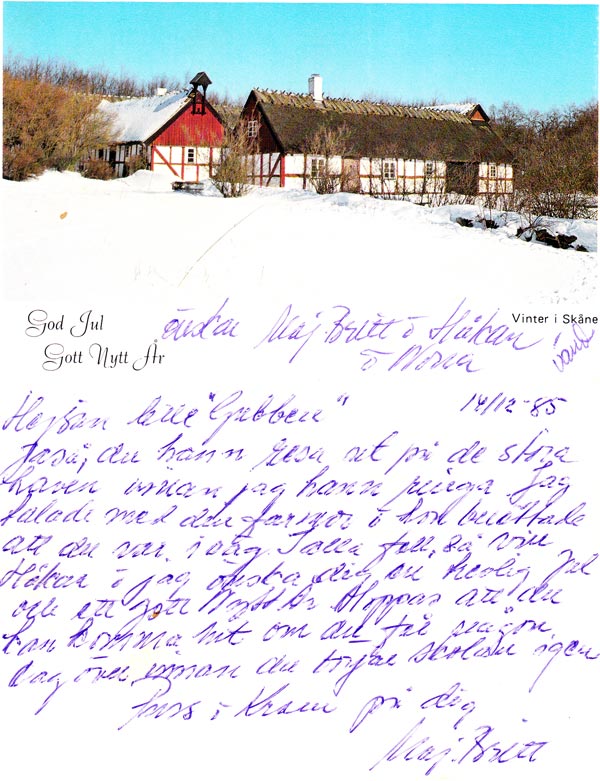 God Jul
Gott Nytt År
önskar Maj Britt o Håkan
o Nona
Vinter i Skåne
Hejsan lille "Gubben"
14/12-85
Jaså, du hann resa ut på de stora
haven innan jag hann ringa Jag
talade med din farmor o hon berättade
att du var iväg. I alla fall, så vill
Håkan o jag önska dig en trevlig Jul
och ett gott Nytt År Hoppas att du
kan komma hit om du får någon
dag över, innan du börjar skolan igen
Puss o Kram på dig
Maj-Britt